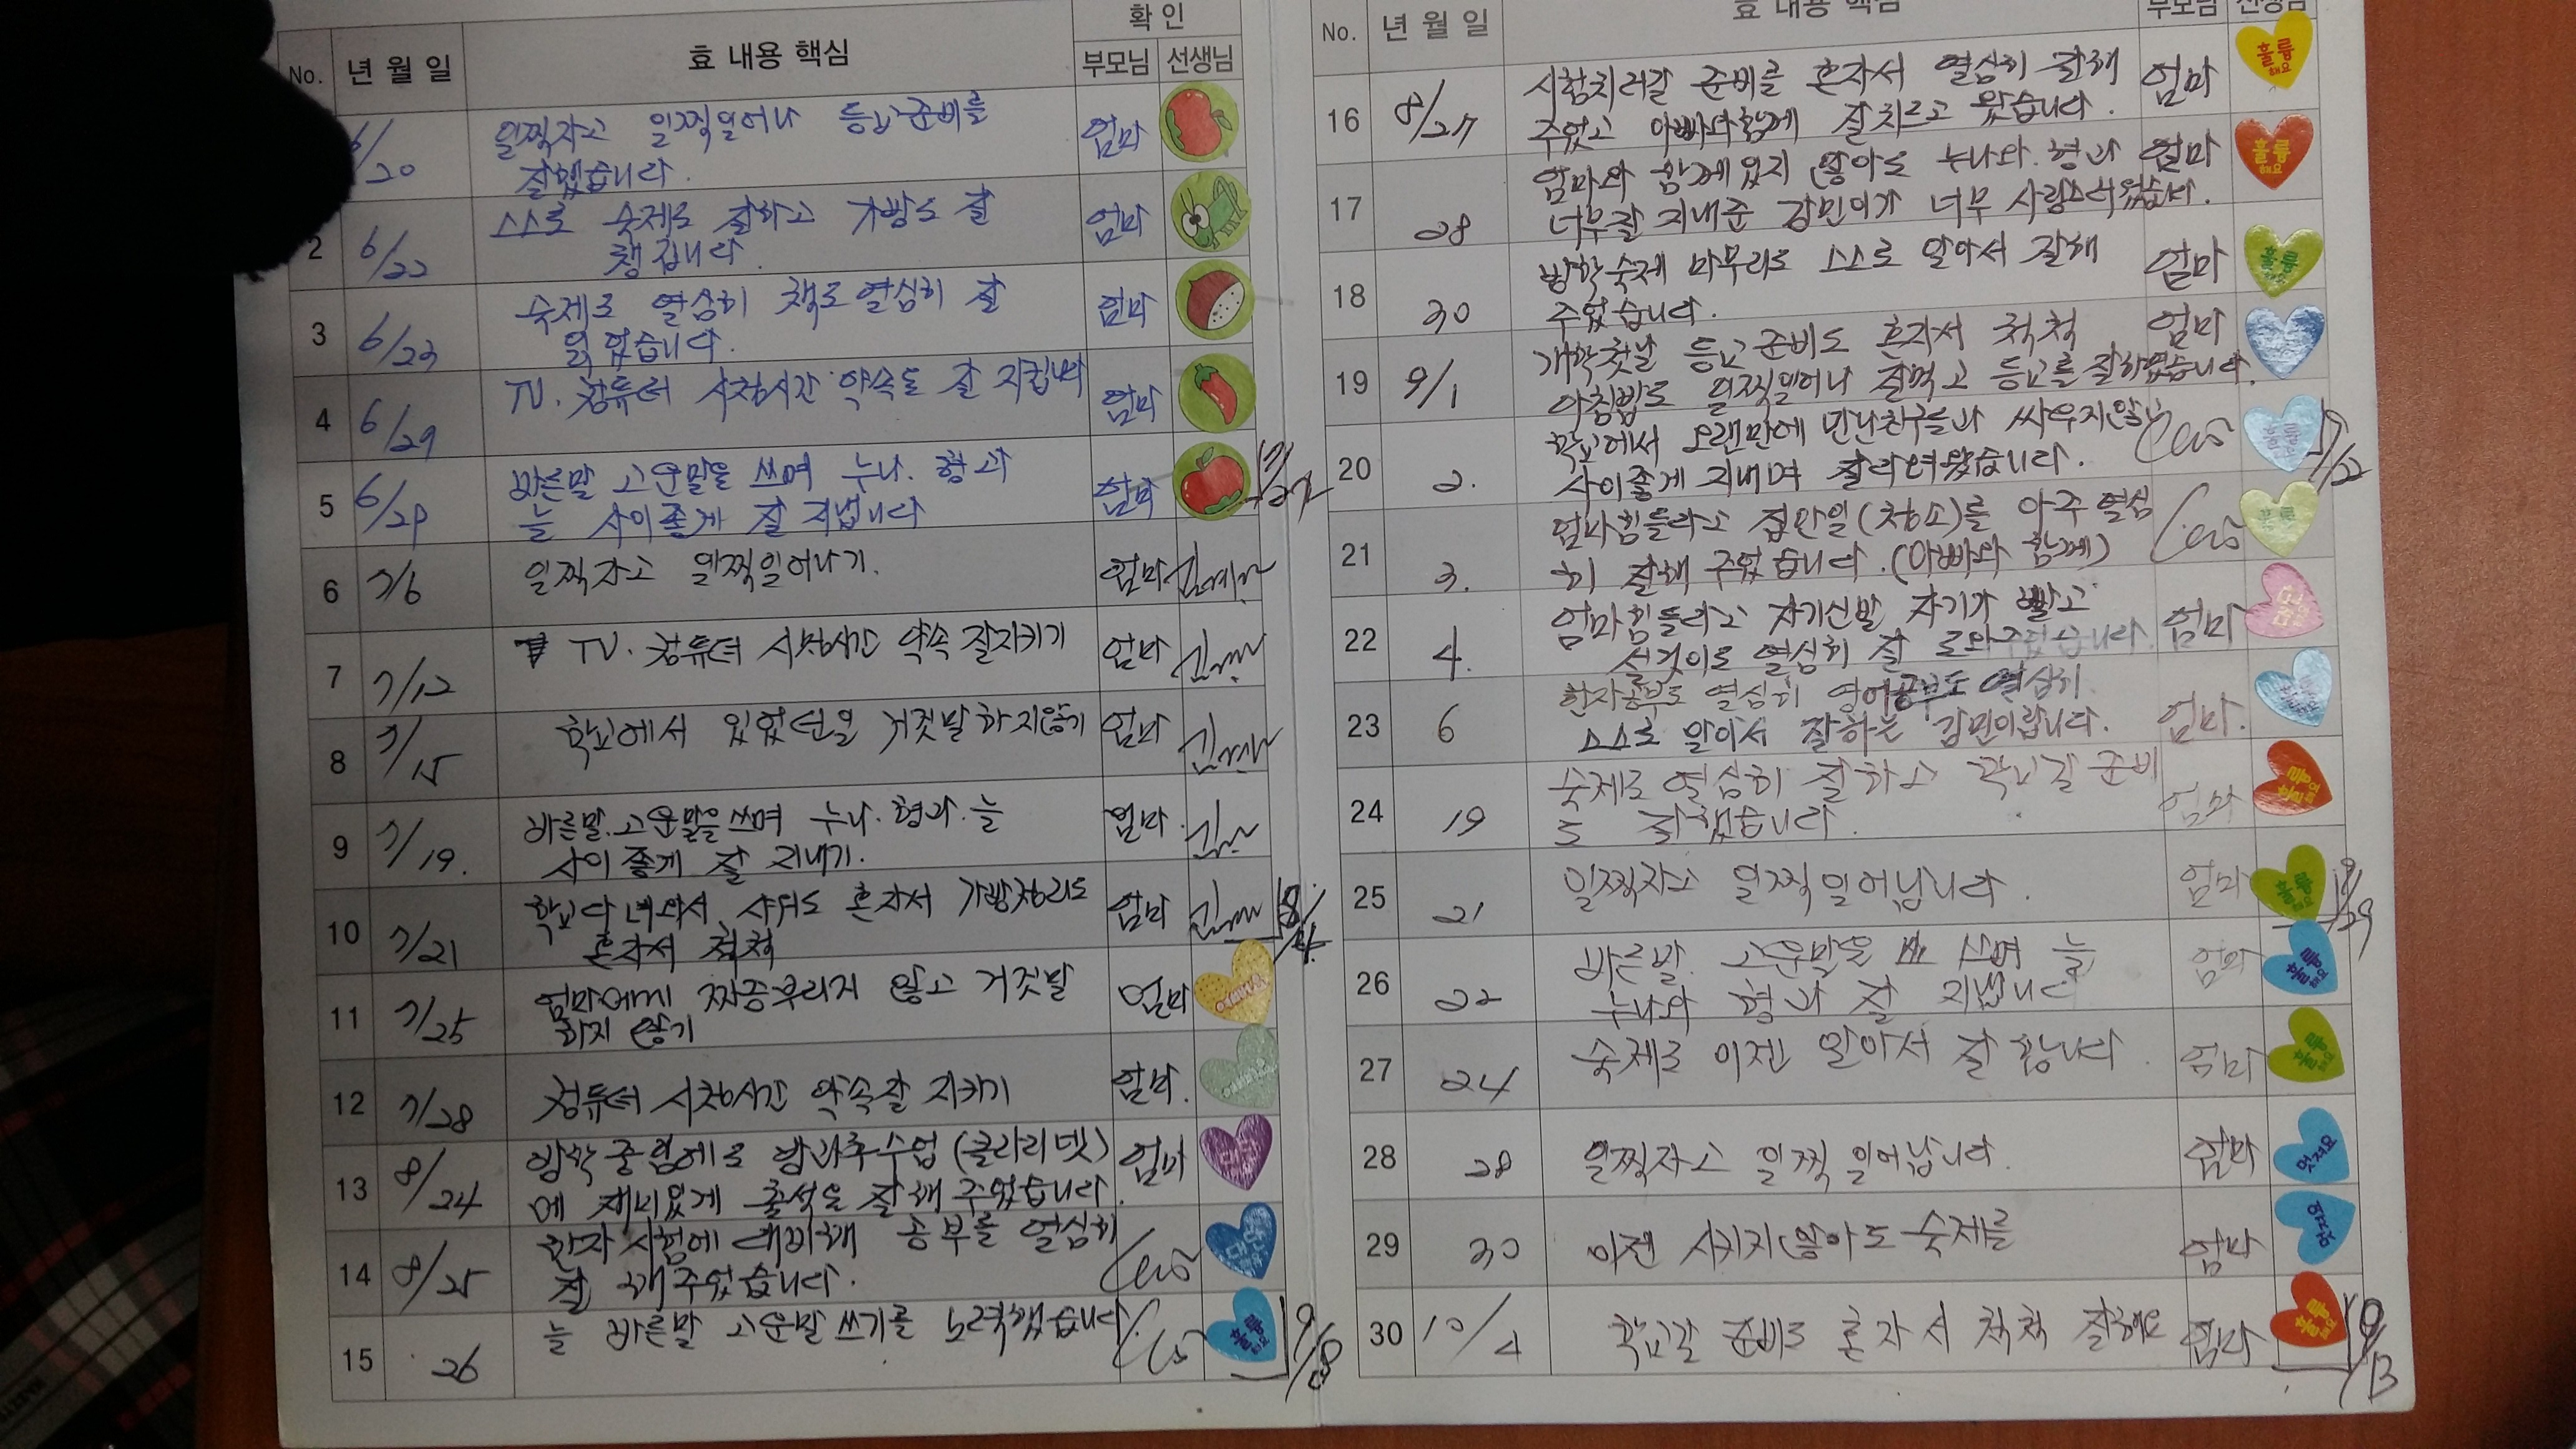 확 인
No. 년 월 일 효 내용 핵심 부모님 선생님
6/20 일찍자고 일찍일어나 등교준비를 엄마
잘했습니다.
2 6/22 스스로 숙제도 잘하고 가방도 잘 엄마
챙깁니다.
3 6/23 숙제도 열심히 책도열심히 잘 엄마
읽었습니다.
4 6/29 TV. 컴퓨터 시청시간 약속도 잘 지킵니다 엄마
5 6/29 바른말 고운말을 쓰며 누나. 형과 엄마
늘 사이좋게 잘 지냅니다
6 7/6 일찍자고 일찍일어나기. 엄마
7 7/12 TV. 컴퓨터 시청시간 약속 잘지키기 엄마
8 7/15 학교에서 있었던일 거짓말하지않기 엄마
9 7/19. 바른말.고운말을쓰며 누나.형과.늘 엄마.
사이좋게 잘 지내기.
10 7/21 학교다녀와서 샤워도 혼자서 가방정리도 엄마
혼자서 척척
8/4
11 7/25 엄마에게 짜증부리지 않고 거짓말 엄마
하지 않기
12 7/28 컴퓨터 시청시간 약속잘 지키기 엄마.
13 8/24 방학중임에도 방과후수업(클라리넷) 엄마
에 재미있게 출석을 잘해 주었습니다.
14 8/25 한자 시험에 대비해 공부를 열심히
잘 해주었습니다.
15 26 늘 바른말 고운말 쓰기를 노력했습니다. 훌륭해요
9/8
No. 년 월 일 효 내용 핵심 부모님 선생님
16 8/27 시험치러갈 준비를 혼자서 열심히 잘해 엄마 훌륭해요
주었고 아빠와함께 잘치르고 왔습니다.
17 28 엄마와 함께있지 않아도 누나와.형과 엄마 훌륭해요
너무잘 지내준 강민이가 너무 사랑스러웠습니다.
18 30 방학숙제 마무리도 스스로 알아서 잘해 엄마 훌륭해요
주었습니다.
19 9/1 개학첫날 등교준비도 혼자서 척척 엄마
아침밥도 일찍일어나 잘먹고 등교를 잘하였습니다.
20 2. 학교에서 오랜만에 만난친구들과 싸우지않고
사이좋게 지내며 잘다녀왔습니다.
21 3. 엄마힘들라고 집안일(청소)를 아주 열심
히 잘해 주었습니다.(아빠와 함께)
22 4. 엄마힘들라고 자기신발 자기가 빨고 엄마
설겆이도 열심히 잘 도와주었습니다.
23 6 한자공부도 열심히 영어공부도 열심히 엄마.
스스로 알아서 잘하는 강민이랍니다.
24 19 숙제도 열심히 잘하고 학교갈 준비 엄마 훌륭해요
도 잘했습니다.
25 21 일찍자고 일찍일어납니다. 엄마 훌륭해요
9/29
26 22 바른말. 고운말을 쓰며 늘 엄마 훌륭해요
누나와 형과 잘 지냅니다
27 24 숙제도 이젠 알아서 잘 합니다. 엄마 훌륭해요
28 28 일찍자고 일찍 일어납니다. 엄마 멋져요
29 30 이젠 시키지않아도 숙제를 엄마 멋져요
30 10/4 학교갈 준비도 혼자서 척척 잘해요 엄마 훌륭해요
10/13